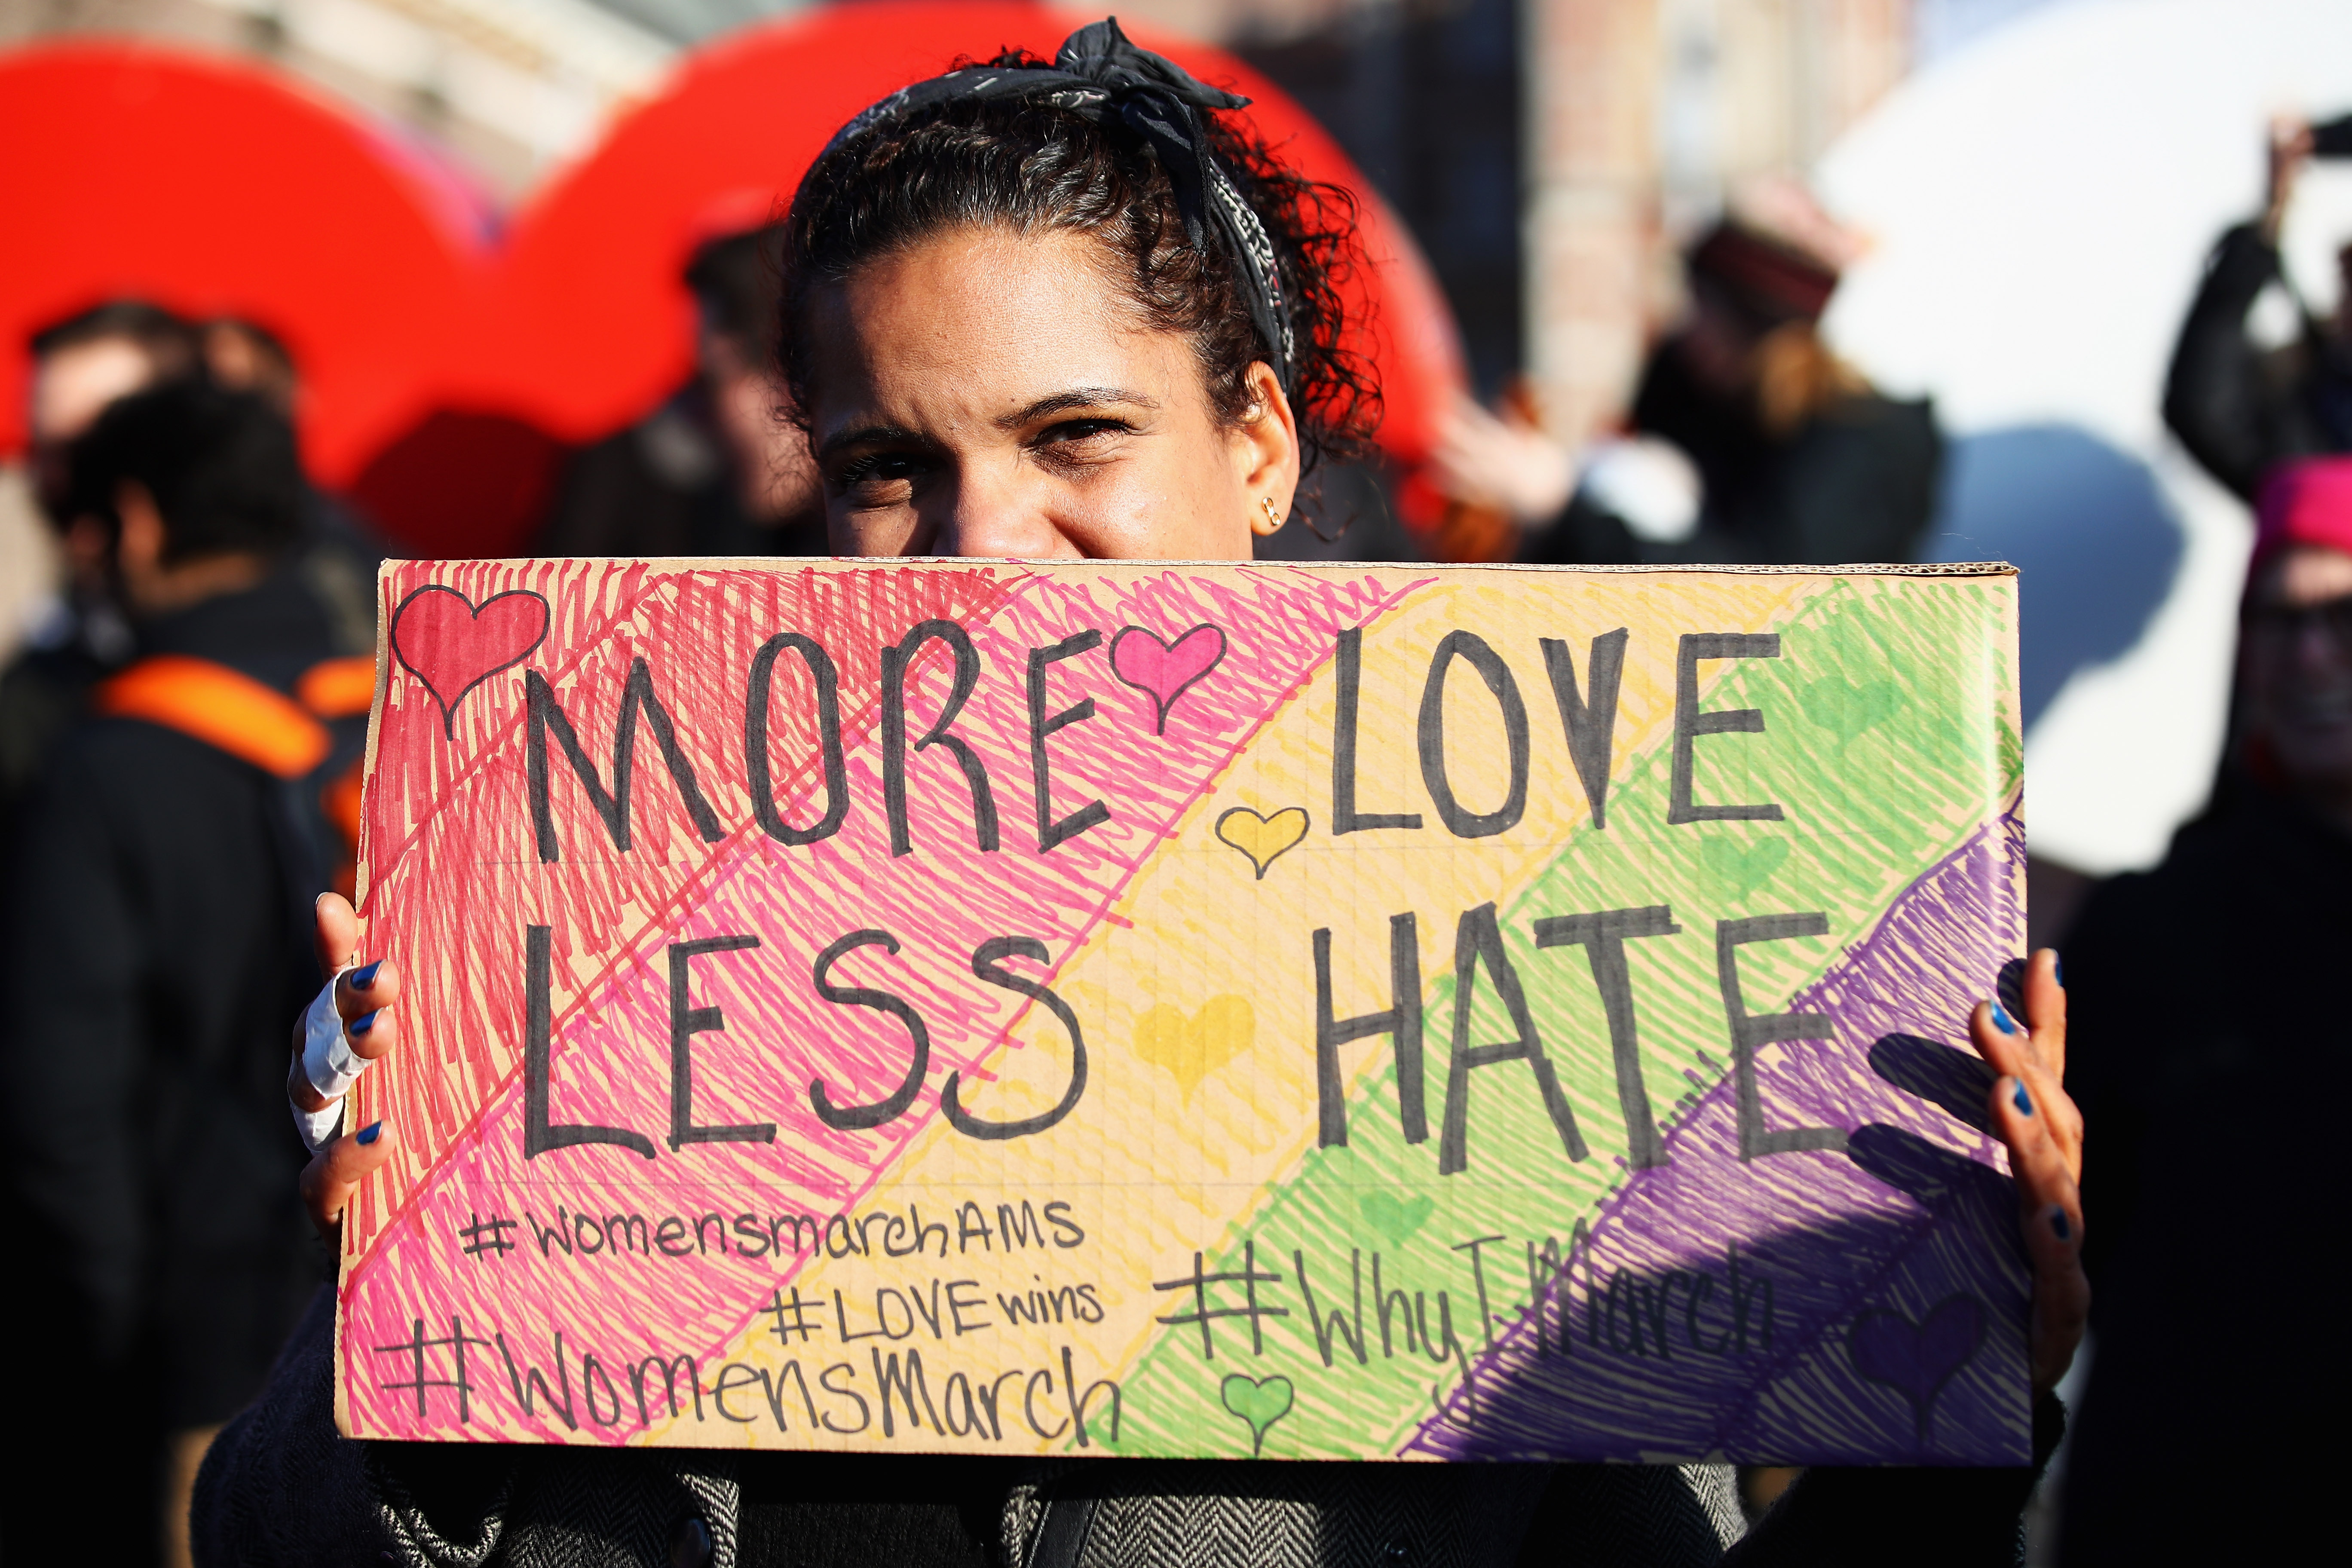 MORE LOVE
LESS HATE
#WomensmarchAMS
#LOVEwins
#WhyIMarch
#WomensMarch